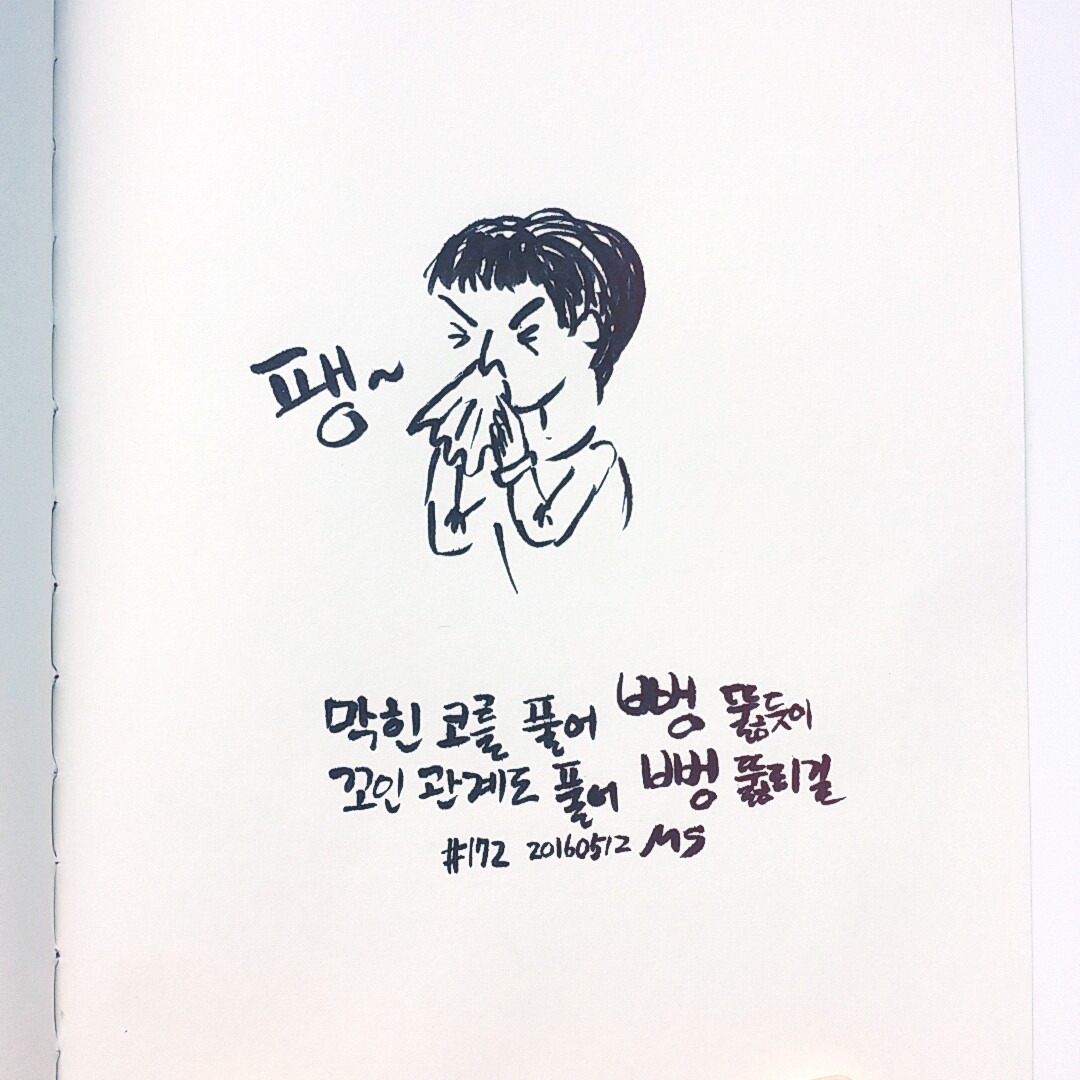 팽~
막힌 코를 풀어 뻥 뚫듯이
꼬인 관계도 풀어 뻥 뚫리길
#172 20160512 MS